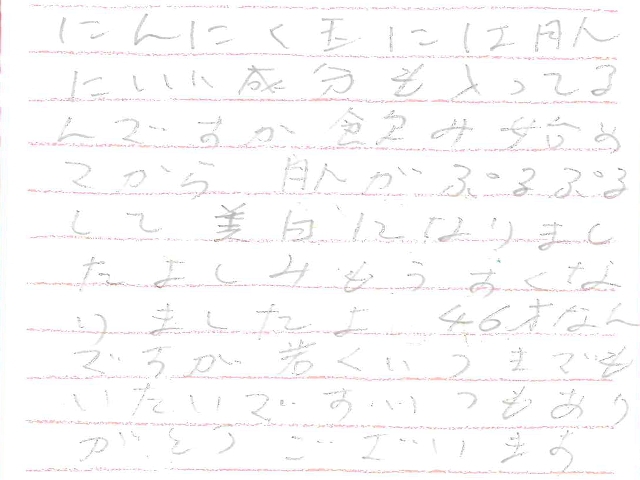 にんにく玉には肌
にいい成分も入ってる
んですか飲み始め
てから 肌がぷるぷる
して美白になりまし
たよしみもうすくな
りましたよ 46才なん
ですが若くいつまでも
いたいですいつもあり
がとうございます